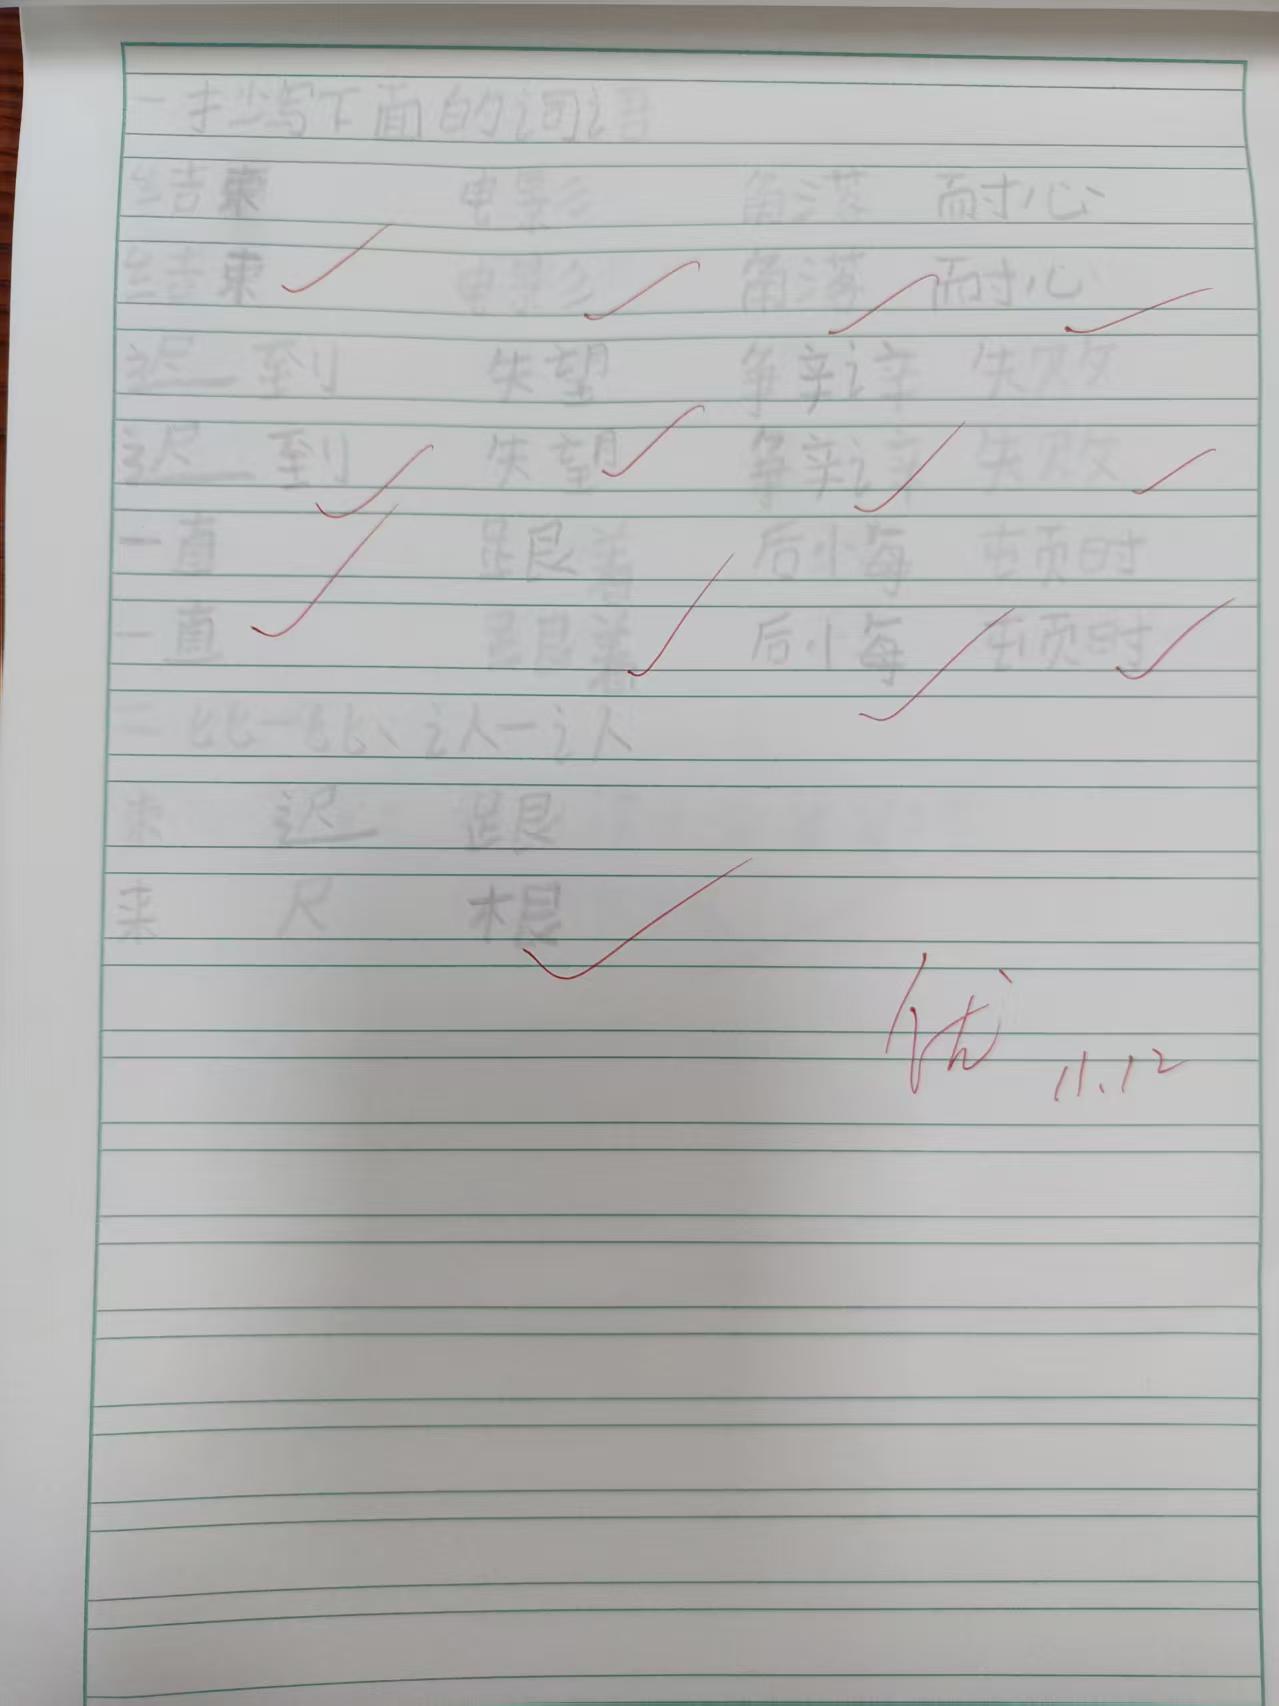 一抄写下面的词语
结束 电影 角落 耐心
结束 电影 角落 耐心
迟到 失望 争辩 失败
迟到 失望 争辩 失败
一直 跟着 后悔 顿时
一直 跟着 后悔 顿时
二 比一比、认一认
束 迟 跟
来 尺 根
优 11.12